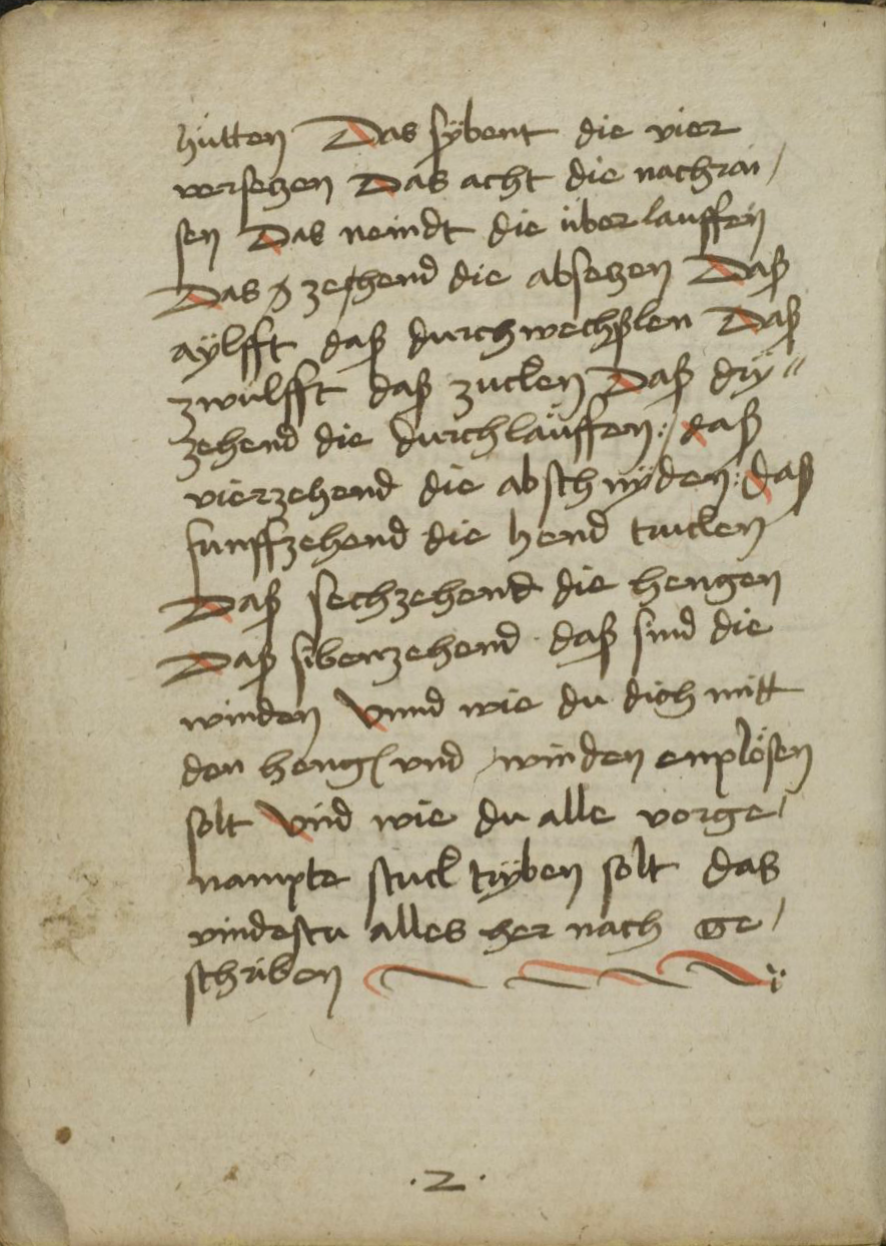 hütten Das sÿbent die vier
versetzen Das acht die nachrai /
sen Das neündt die überlauffen
Das zehend die absetzen Daß
aÿlfft daß durchwechßlen Daß
zwülfft daß zucken Daß drÿ〃
zehend die durchläuffen : daß
vierzehend die abschnÿden : daß
funffzehend die hend trucken
Daß sechzehend die hengen
Daß sibenzehend daß sind die
winden Vnnd wie du dich mitt
den heng vnd winden enplösen
solt Vnd wie du alle vorge /
nampte stuck trÿben solt das
vindestu alles her nach ge /
schriben
. 2 .